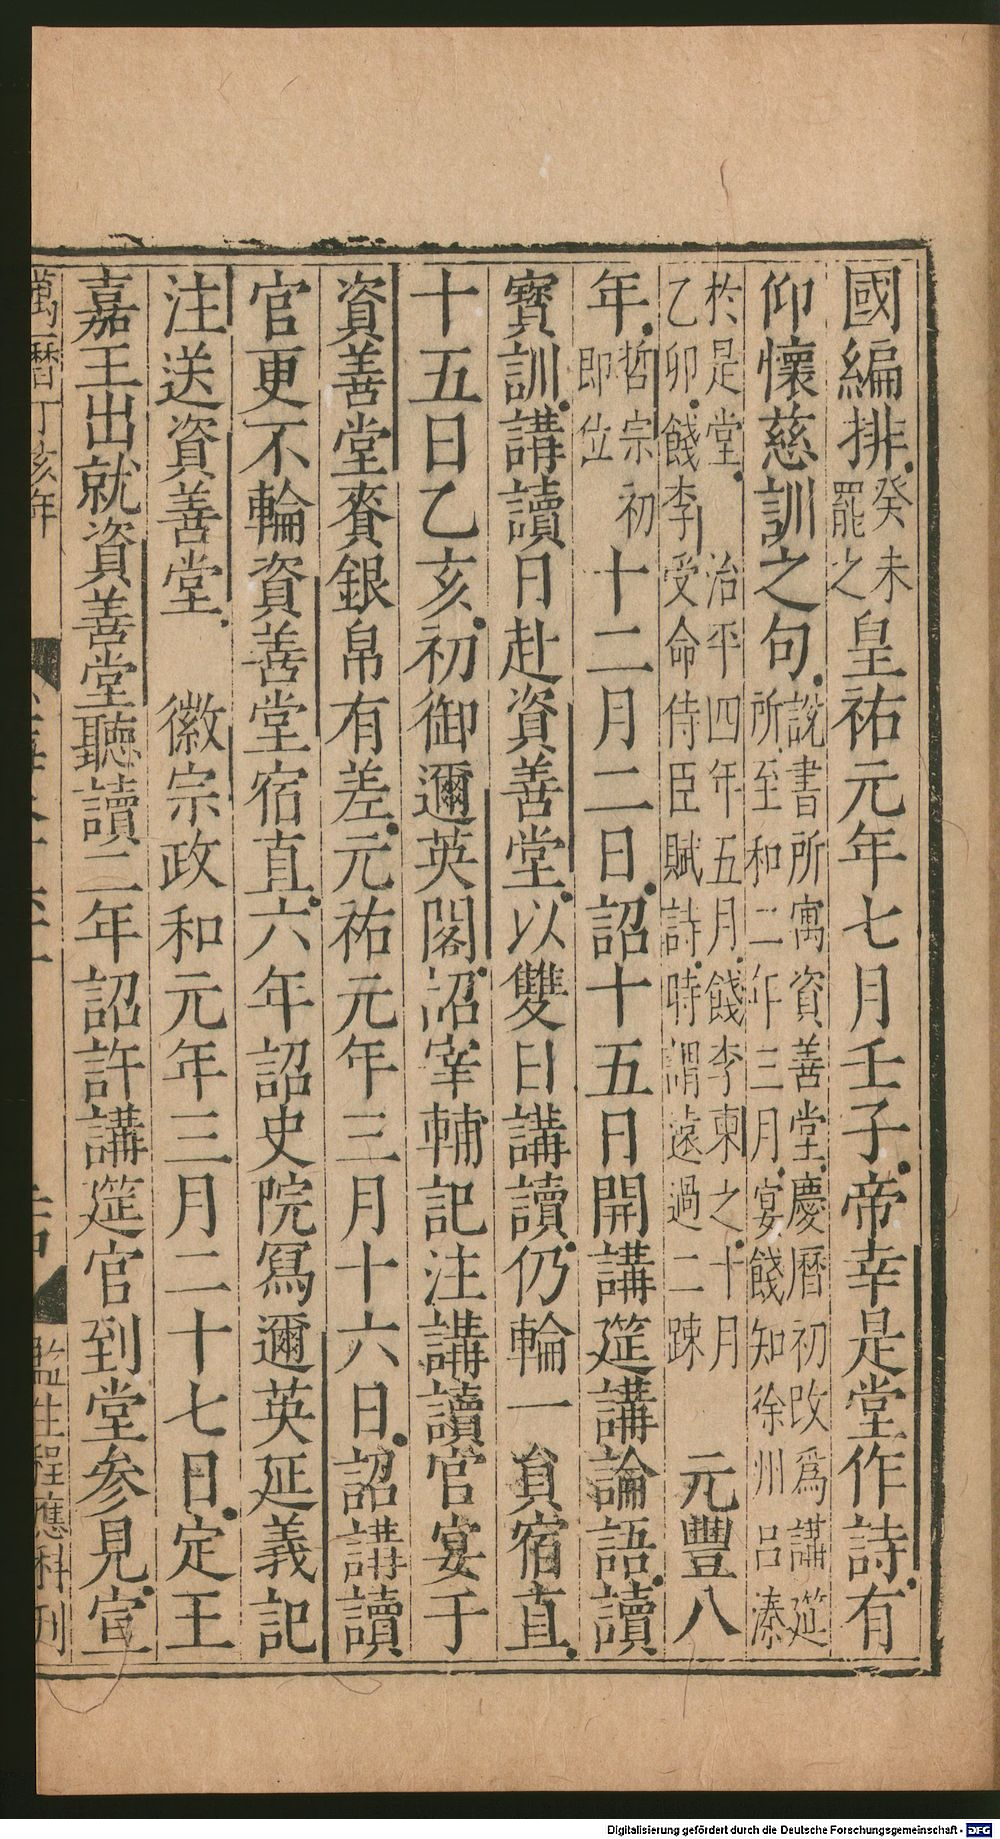 國編排癸未罷之皇祐元年七月壬子帝幸是堂作詩有
仰懷慈訓之句說書所寓資善堂慶曆初改爲講筵所至和二年三月宴餞知徐州呂溱
於是堂治平四年五月餞李柬之十月乙卯餞李受命侍臣賦詩時謂遠過二踈元豐八
年哲宗初即位十二月二日詔十五日開講筵講論語讀
寶訓講讀日赴資善堂以雙日講讀仍輪一貟宿直
十五日乙亥初御邇英閣詔宰輔記注講讀官宴于
資善堂賚銀帛有差元祐元年三月十六日詔講讀
官更不輪資善堂宿直六年詔史院寫邇英延義記
注送資善堂 徽宗政和元年三月二十七日定王
嘉王出就資善堂聽讀二年詔許講筵官到堂參見宣
萬曆丁亥年
監生程應科刊
Digitalisierung gefördert durch die Deutsche Forschungsgemeinschaft - DFG